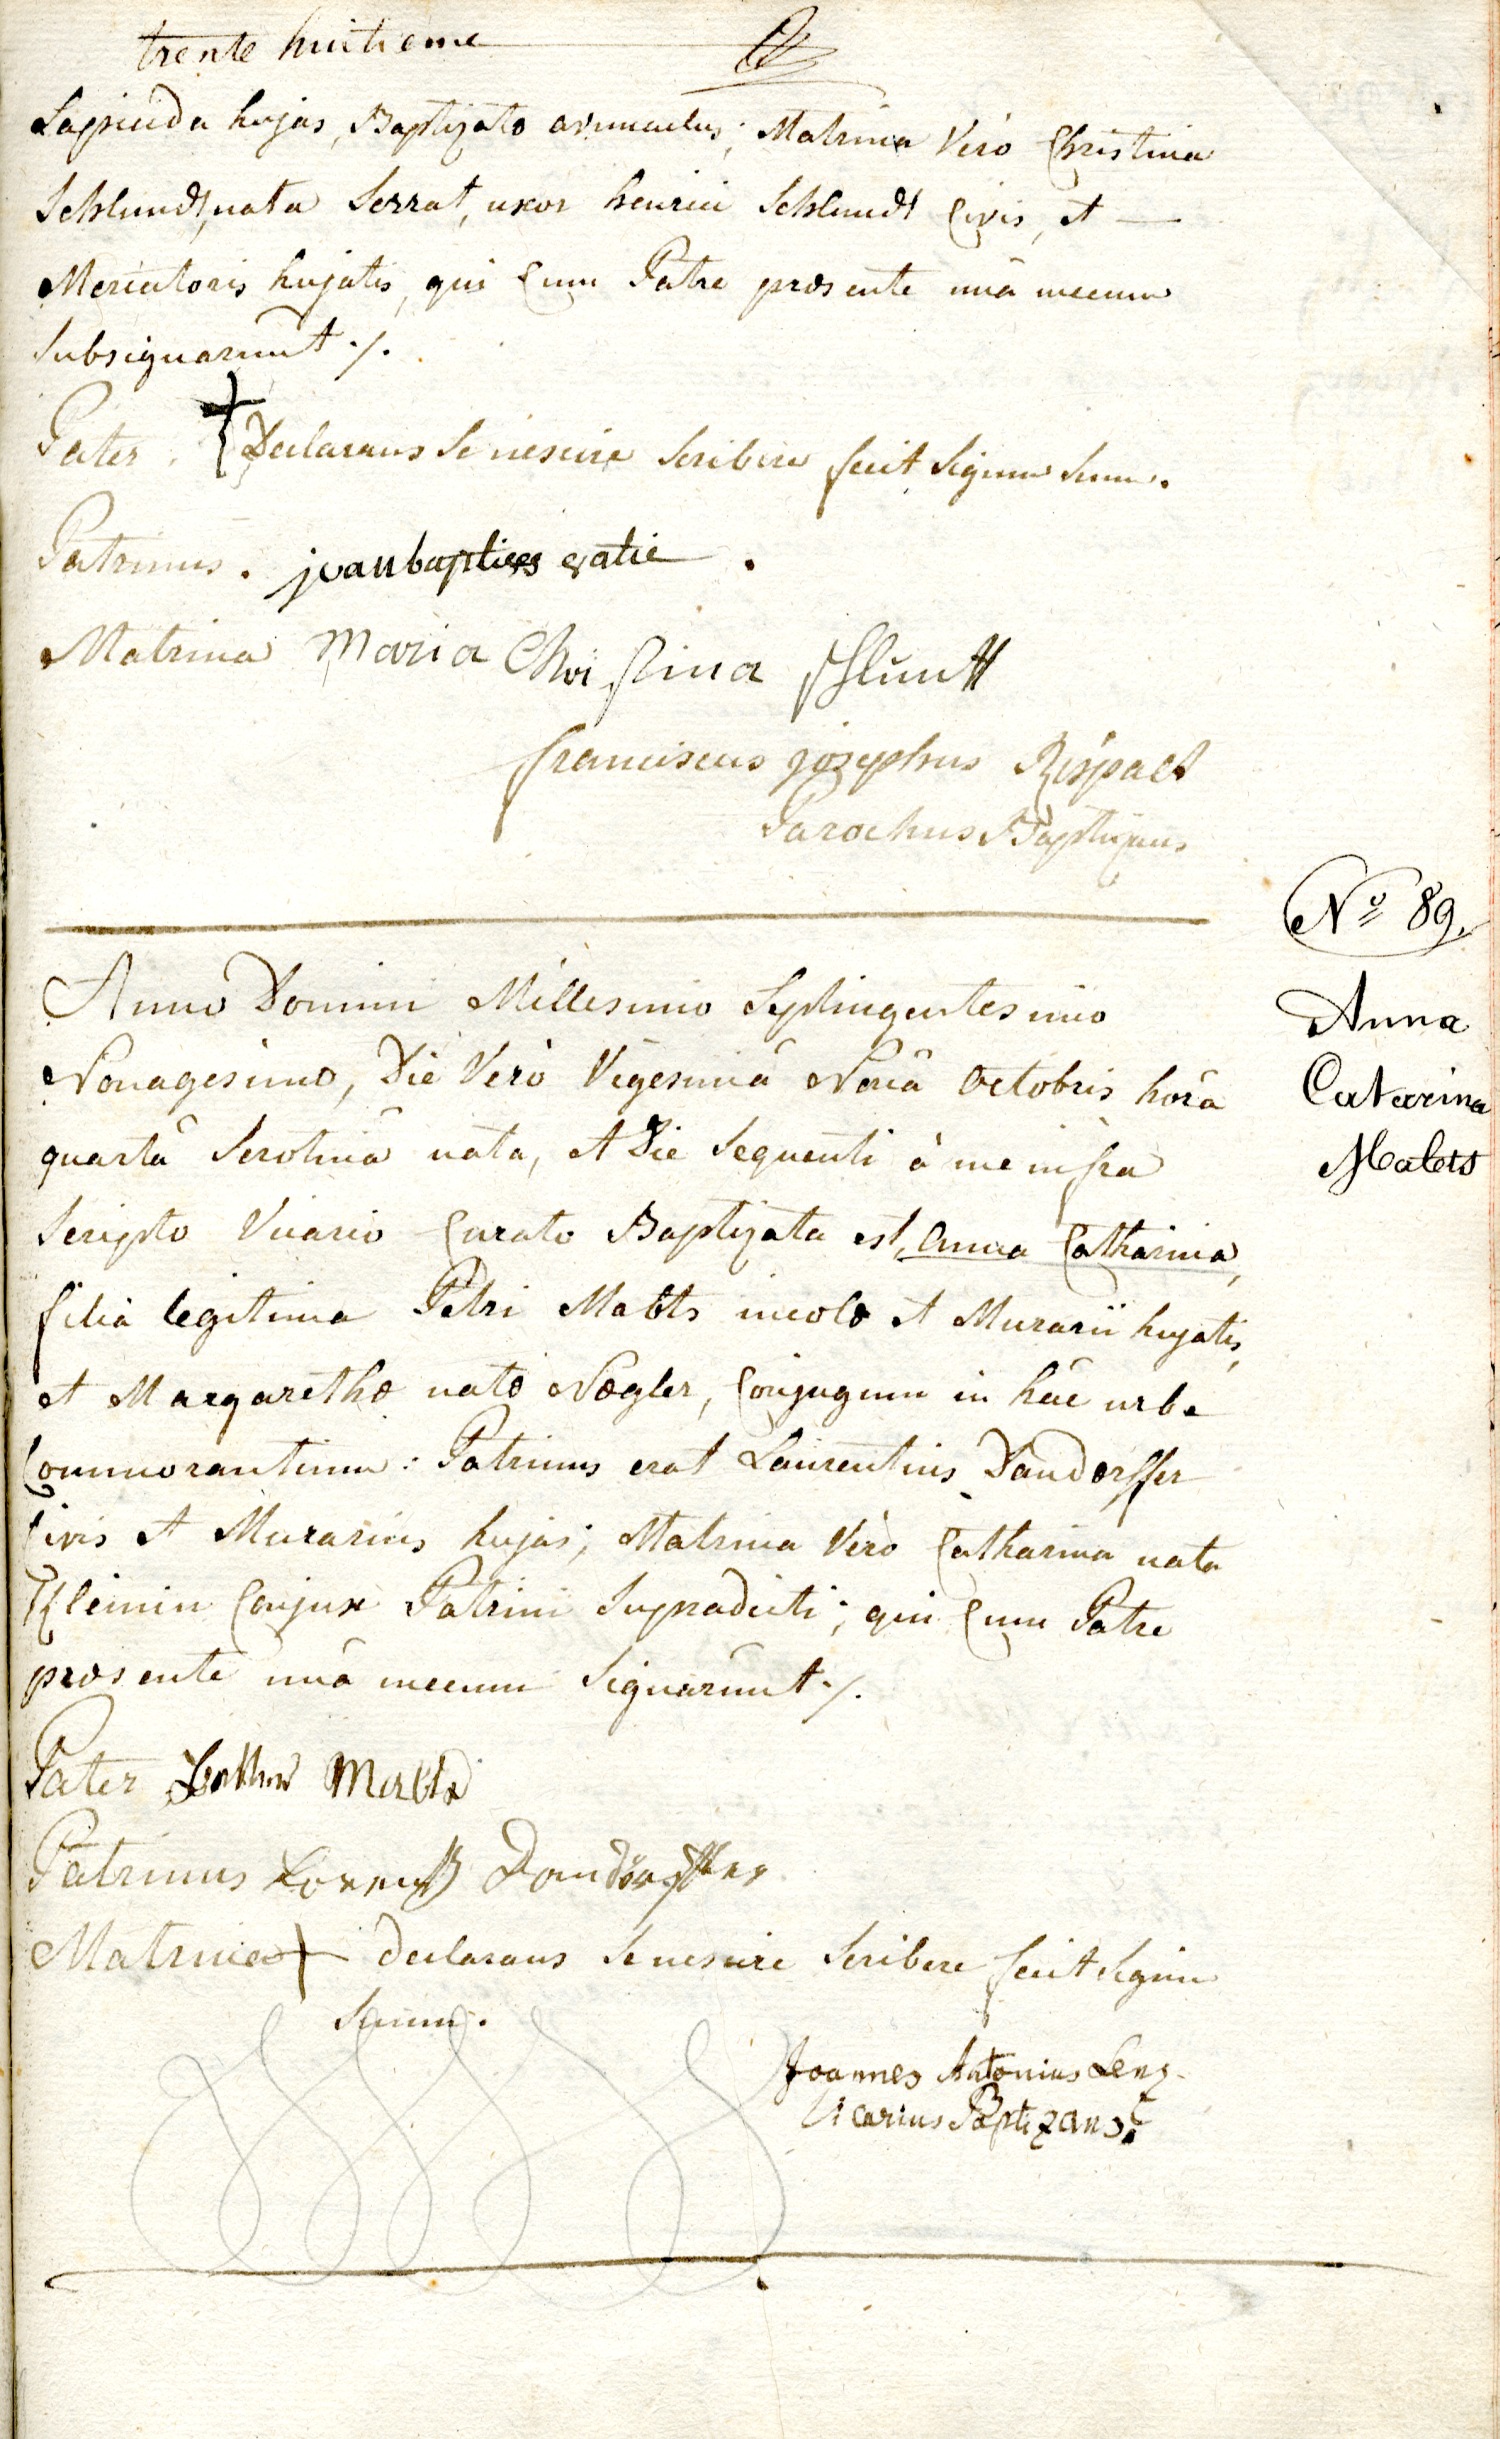 trente huitieme
Lapicida hujas, Baptizatæ avunculus; Matrina Verò Christina
Schlundt, nata Serrat, uxor henrici Schlundt Civis, et
Mercatoris hujatis, qui Cum Patre præsente unâ mecum
Subsignarunt ·/.
Pater. Declarans Se nescire Scribere fecit Signum Suum.
Patrinus. jean bapties
Matrina Maria Christina Schlundt
franciscus josephus Rispalt
Parochus Baptizans
Nº 89.
Anna
Catarina
Malets
Anno Domini Millesimo Septingentesimo
Nonagesimo, Die Verò Vigesimâ Nonâ Octobris horâ
quartâ Serotinâ nata, et Die Sequenti à me infra
Scripto Vicario Curato Baptizata est, Anna Catharina,
filia legitima Petri Mablts incolæ et Murarii hujatis,
et Margarethæ natæ Nægler, Conjugum in hâc urbe
Commorantium: Patrinus erat Laurentius Dandörffer
Civis et Murarius hujas; Matrina Verò Catharina nata
Kleimin Conjux Patrini Supradicti; qui Cum Patre
præsente unâ mecum Signarunt ·/.
Pater
Patrinus Lorentz Dandörffer
Matrina declarans Se nescire Scribere fecit Signum
Suum.
Joannes Antonius Lenz
Vicarius Baptizans.